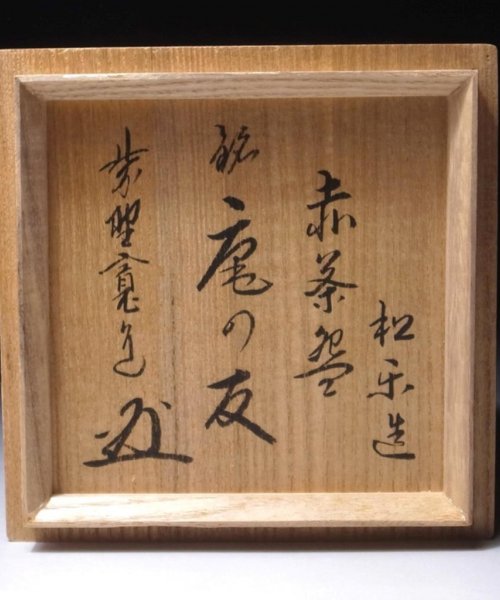 松楽造
赤茶盌
銘
庵の友
紫野寛道